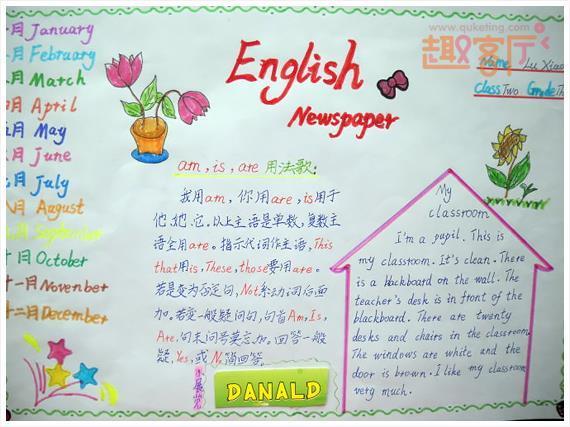 www.quketing.com
趣客厅
English
Newspaper
Name Lu Xiao
Class Two Grade Th
月 January
月 February
月 March
四月 April
五月 May
月 June
月 July
月 August
月 September
十月 October
十一月 November
十二月 December
am, is, are 用法歌:
我用am, 你用are, is用于
他,她,它。以上主语是单数,复数主
语全用are。指示代词作主语, This
that用is, These, those要用are。
若是变为否定句, Not系动词后面
加。若变一般疑问句, 句首Am, Is,
Are. 句末问号莫忘加, 回答一般
疑, Yes, 或No简回答.
DANALD
My
classroom
I'm a pupil. This is
my classroom. It's clean. There
is a blackboard on the wall. The
teacher's desk is in front of the
blackboard. There are twenty
desks and chairs in the classroom
The windows are white and the
door is brown. I like my classroom
very much.